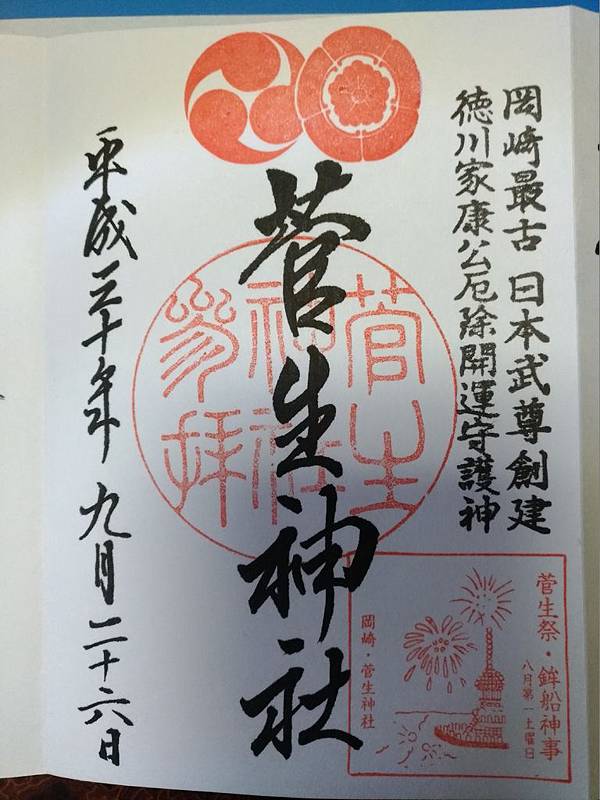 岡崎最古 日本武尊創建
徳川家康公厄除開運守護神
菅生神社
菅生
神社
参拝
平成三十年 九月二十六日
菅生祭・鉾船神事
八月第一土曜日
岡崎・菅生神社